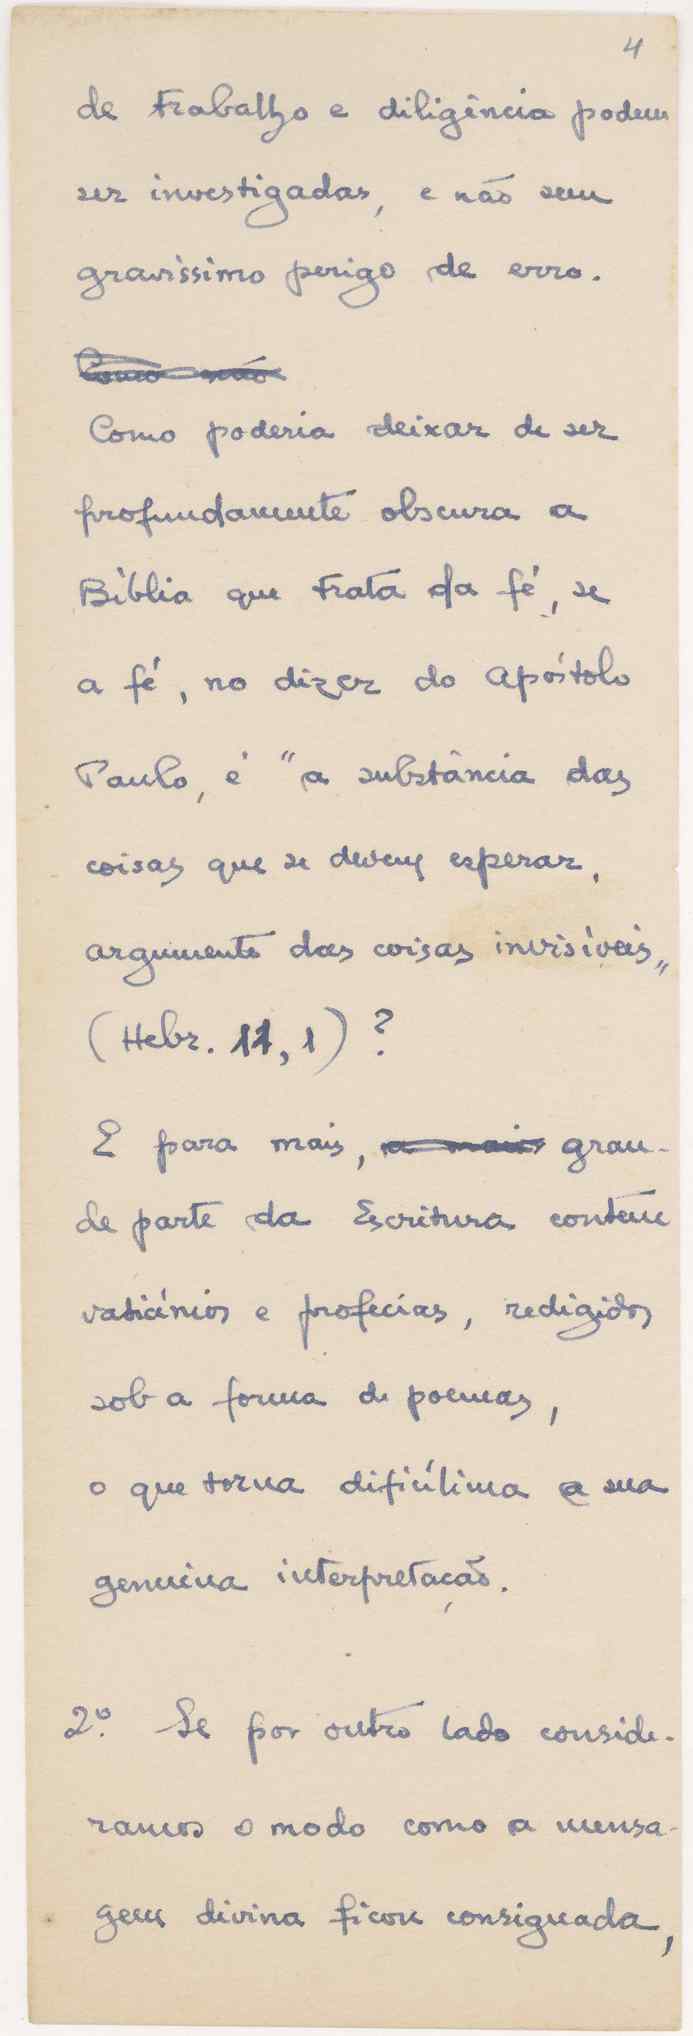 4
de trabalho e diligência podem
ser investigadas, e não sem
gravíssimo perigo de erro.
Como não
Como poderia deixar de ser
profundamente obscura a
Bíblia que trata da fé, se
a fé, no dizer do Apóstolo
Paulo, é "a substância das
coisas que se devem esperar,
argumento das coisas invisíveis"
(Hebr. 11, 1) ?
E para mais, a mais gran-
de parte da Escritura contém
vaticínios e profecias, redigidos
sob a forma de poemas,
o que torna dificílima a sua
genuina interpretação.
2º. Se por outro lado conside-
ramos o modo como a mensa-
gem divina ficou consignada,